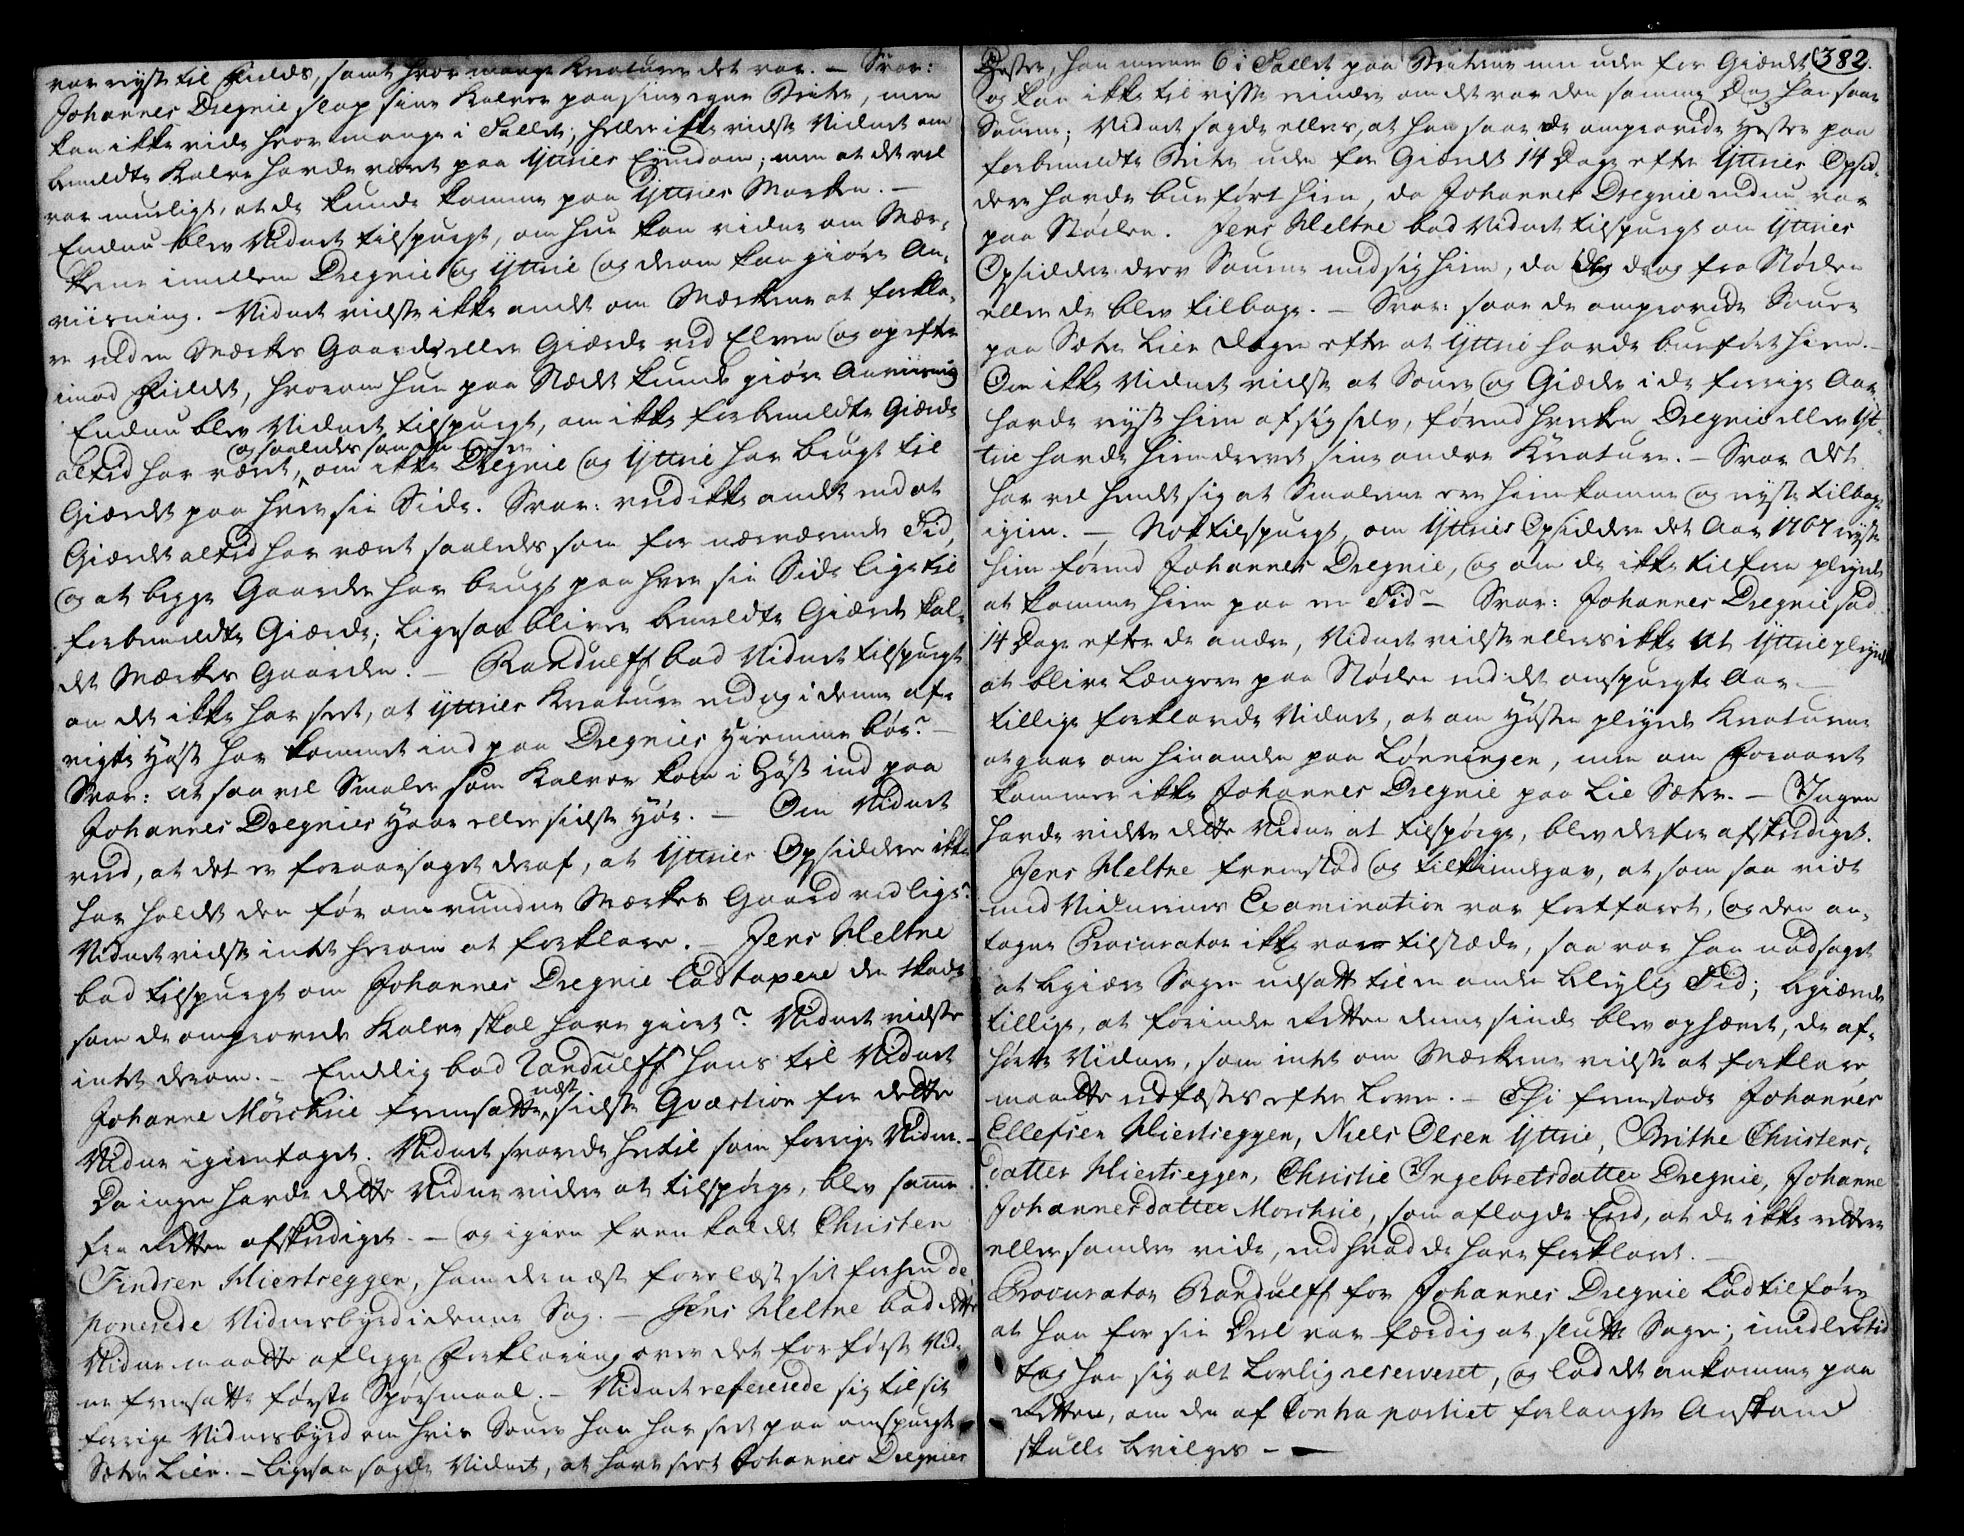 var reyst til Fields, samt hvor mange Kreature det var. — Svar:
Johannes Dregnie slap sine Kalver paa sine egne Strike, men
kan ikke vide hvor mange i Tallet; heller ikke vidste Vidnet om
bemeldte Kalve havde været paa Yttries Eyendom; men at det vel
var mueligt, at de kunde komme paa Yttries Marken. —
Endnu blev Vidnet tilspurgt, om hun kan vidne om Mær-
kerne imellem Dregnie og Yttrie og derom kan giøre An-
viisning. — Vidnet vidste ikke andet om Mærkerne at forkla-
re end en Mærkes Gaard eller Giærde ved Elven og op efter
imod Fieldet, hvorom hun paa Stædet kunde giøre Anviisning
Endnu blev Vidnet tilspurgt, om ikke forbemeldte Giærde
altid har været, og saaledes som det er om ikke Dregnie og Yttrie har brugt til
Giærdet paa hver sin Side. Svar: veed ikke andet end at
Giærdet altid har været saaledes som for nærværende Tid,
og at begge Gaarder har brugt paa hver sin Side lige til
forbemeldte Giærde; ligesaa bliver bemeldte Giærde kal-
det Mærkes Gaarden. — Randulff bad Vidnet tilspurgt
om det ikke har seet, at Yttries Kreature endog i denne afv
vigte Høst har kommet ind paa Dregnies Hiemme bøe? —
Svar: at saa vel Smaler som Kalver kom i Høst ind paa
Johannes Dregnies Haae eller sidste Høe. — Om Vidnet
veed, at det er foraarsaget deraf, at Yttries Opsiddere ikke
har holdt den før omvundne Mærkes Gaard ved lige?
Vidnet vidste intet herom at forklare. — Jens Meltne
bad tilspurgt om Johannes Dregnie lod taxere den skade
som de omprovede Kalve skal have giort? Vidnet vidste
intet derom. — Endelig bad Randulff hans til Vidnet
Johanne Mörchrie fremsatte næst sidste Qvæstion for dette
Vidne igientaget. Vidnet svarede hertil som forrige Vidne. —
Da ingen havde dette Vidne videre at tilspørge, blev samme
fra Retten afskediget. — og igien fremkaldet Christen
Findsen Hiertseggen, ham dernæst forelæst sit forhen de-
ponerede Vidnesbyrd i denne Sag. — Jens Meltne bad dette
Vidne maatte aflegge Forklaring over det for første Vid-
ne fremsatte første Spørsmaal. — Vidnet refererede sig til sit
forrige Vidnesbyrd om hvis Souer han har seet paa omspurgte
Sæter Lien. — ligesaa sagde Vidnet, at have seet Johannes Dregnies
382.
Hester, han meener 6 i Tallet paa Strikerne uden for Giærdet
og kan ikke til visse minde om det var den samme Dag han saae
Souerne; Vidnet sagde ellers, at han saae de omprovede Hester paa
forbemeldte Strike uden for Giærdet 14 Dage efter Yttries Opsid-
dere havde bueført hiem, da Johannes Dregnie endnu var
paa Støelen. Jens Meltne bad Vidnet tilspurgt om Yttries
Opsiddere drev Souerne med sig hiem, da de drog fra Støelen
eller de blev tilbage. — Svar: saae de omprovede Souer
paa Sæter Lien dagen efter at Yttrie havde bueført hiem. —
Om ikke Vidnet vidste at Souer og Gieder i de forrige Aar
havde reyst hiem af sig selv, førend hverken Dregnie eller Yt-
trie havde hiemdrevet sine andre Kreature. — Svar det
har vel hendt sig at Smalerne ere hiemkomne og reyste tilbage
igien. — Nok tilspurgt om Yttries Opsiddere det Aar 1767 reyste
hiem førend Johannes Dregnie, og om de ikke tilforn pleyede
at komme hiem paa en Tid? — Svar: Johannes Dregnie sad
14 Dage efter de andre, Vidnet vidste ellers ikke at Yttrie pleyede
at blive længere paa Støelen end det omspurgte Aar. —
tillige forklarede Vidnet, at om Høsten pleyede Kreaturene
at gaae om hinanden paa Lønningen, men om Foraaret
kommer ikke Johannes Dregnie paa Lie Sæter. — Ingen
havde videre dette Vidne at tilspørge, blev derfor afskediget.
Jens Meltne fremstod og tilkiendegav, at som saa vidt
med Vidnernes Examination var fortfaret, og den an-
tagne Procurator ikke var tilstæde, saa var han nødsaget
at begiære Sagen udsatt til en anden beleylig Tid; begiærede
tillige, at forinden Retten denne sinde blev ophævet, de af-
hørte Vidner, som intet om Mærkerne vidste at forklare
maatte edfæstes efter Loven. — Thi fremstode Johannes
Ellefsen Hiertseggen, Niels Olsen Yttrie, Brithe Christens-
datter Hiertseggen, Christie Ingebretsdatter Dregnie, Johanne
Johannesdatter Morchrie, som aflagde Eed, at de ikke rettere
eller sandere vide, end hvad de have forklaret. —
Procurator Randulff for Johannes Dregnie lod tilføre
at han for sin Deel var færdig at slutte Sagen; imidlertid
tog han sig alt lovlig reserveret, og lod det ankomme paa
Retten, om den af Contra partiet forlangte Anstand
skulle bevilges — —